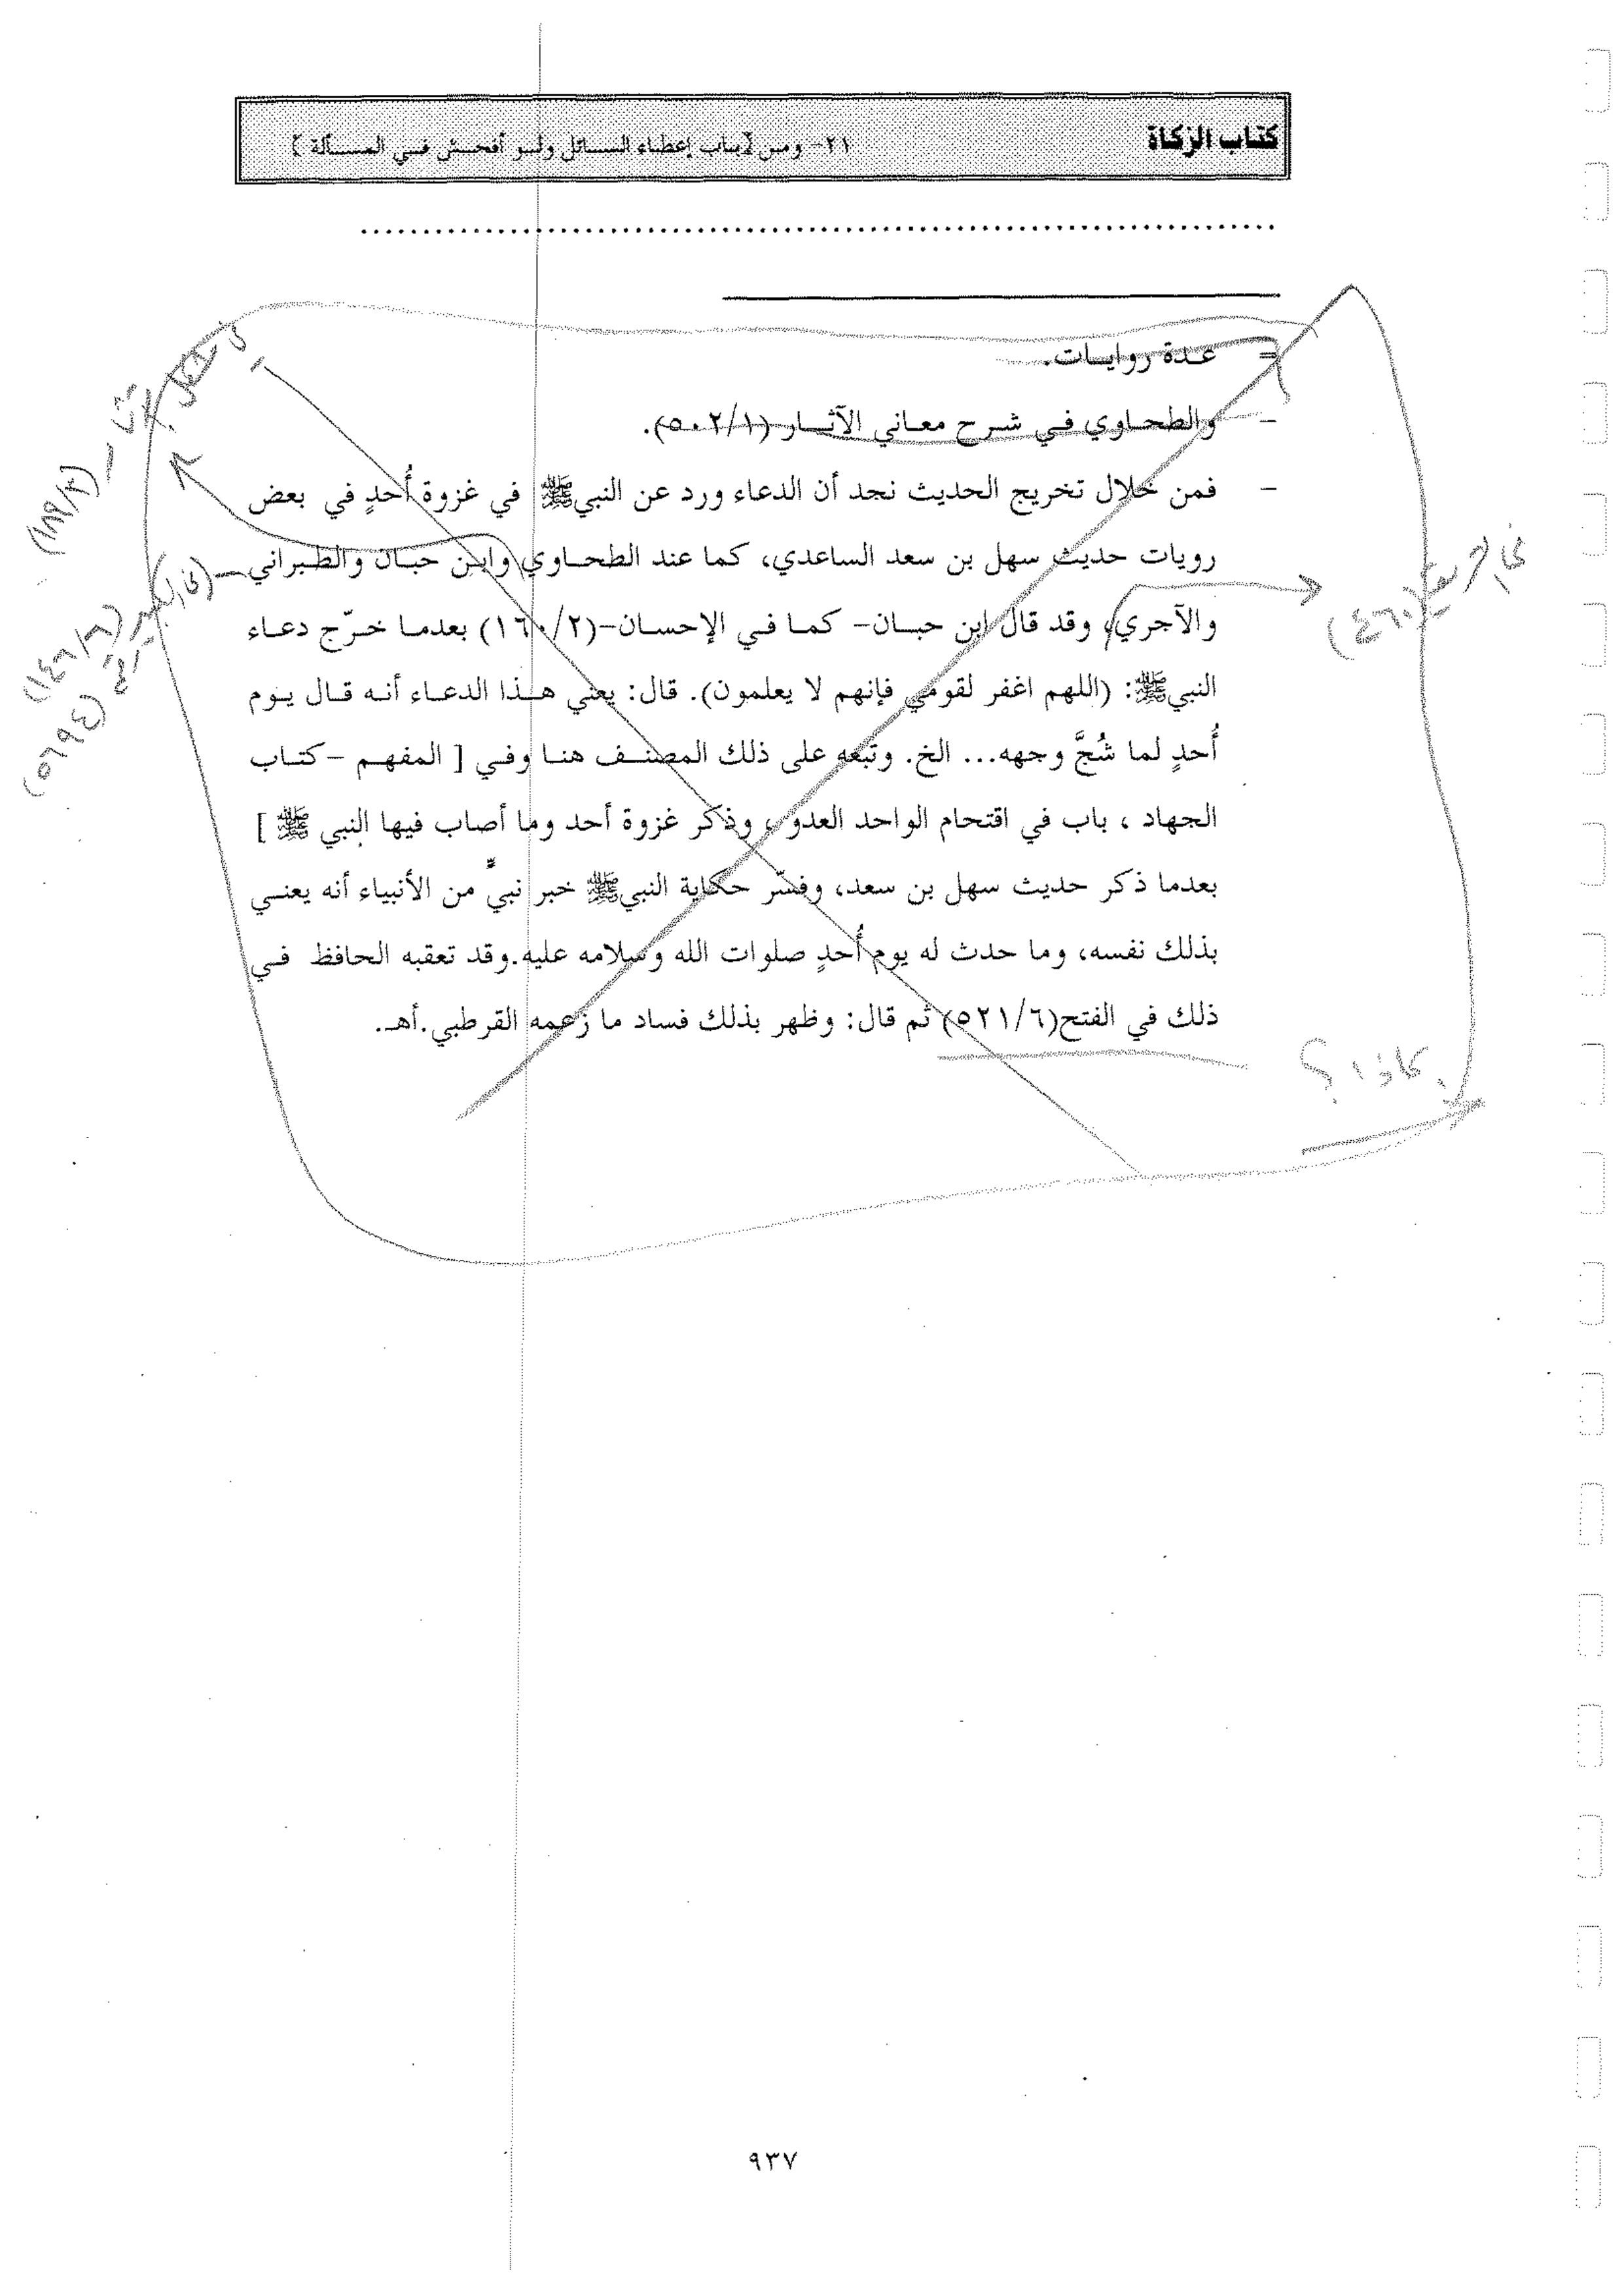 كتاب الزكاة
٢١- ومن [باب إعطاء السائل ولو أفحش في المسألة ]
= عدة روايات.
- والطحاوي في شرح معاني الآثار (٥٠٢/١).
- فمن خلال تخريج الحديث نجد أن الدعاء ورد عن النبيﷺ في غزوة أُحدٍ في بعض
رويات حديث سهل بن سعد الساعدي، كما عند الطحاوي وابن حبان والطبراني
والآجري، وقد قال ابن حبان- كما في الإحسان-(١٦٠/٢) بعدما خرّج دعاء
النبيﷺ: (اللهم اغفر لقومي فإنهم لا يعلمون). قال: يعني هذا الدعاء أنه قال يوم
أُحدٍ لما شُجَّ وجهه... الخ. وتبعه على ذلك المصنف هنا وفي [ المفهم -كتاب
الجهاد ، باب في اقتحام الواحد العدو ، وذكر غزوة أحد وما أصاب فيها النبي ﷺ ]
بعدما ذكر حديث سهل بن سعد، وفسّر حكاية النبيﷺ خبر نبيٍّ من الأنبياء أنه يعني
بذلك نفسه، وما حدث له يوم أُحدٍ صلوات الله وسلامه عليه.وقد تعقبه الحافظ في
ذلك في الفتح(٥٢١/٦) ثم قال: وظهر بذلك فساد ما زعمه القرطبي.أهـ.
في الشريعة (٤٦٠)
(في الكبير (١٤٦/٦)
برقم (٥٦٩٤)
لماذا ؟
٩٣٧